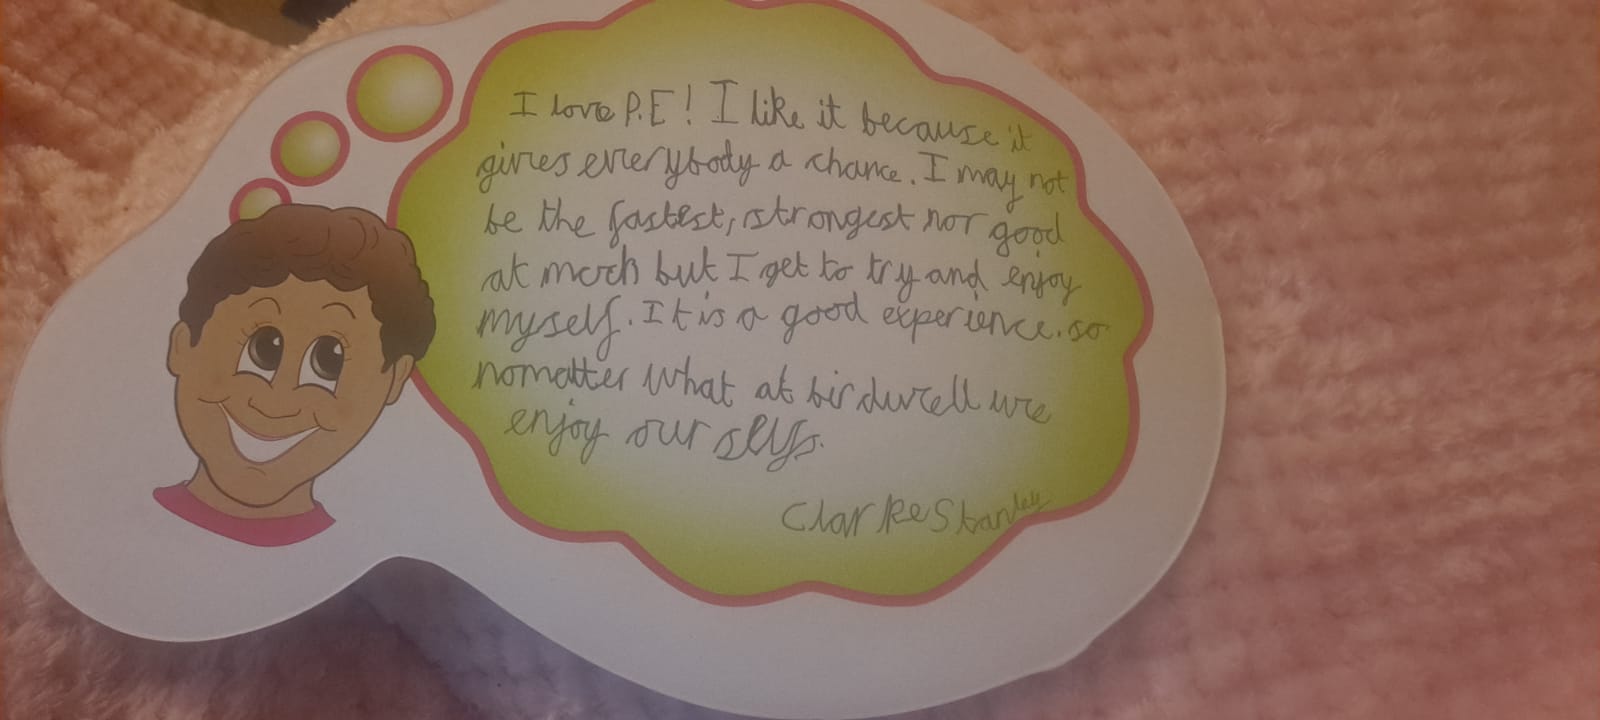 I love P.E! I like it because it
gives everybody a chance. I may not
be the fastest, strongest nor good
at much but I get to try and enjoy
myself. It is a good experience. so
nomatter what at birdwell we
enjoy our selfs.
Clarke Stanley